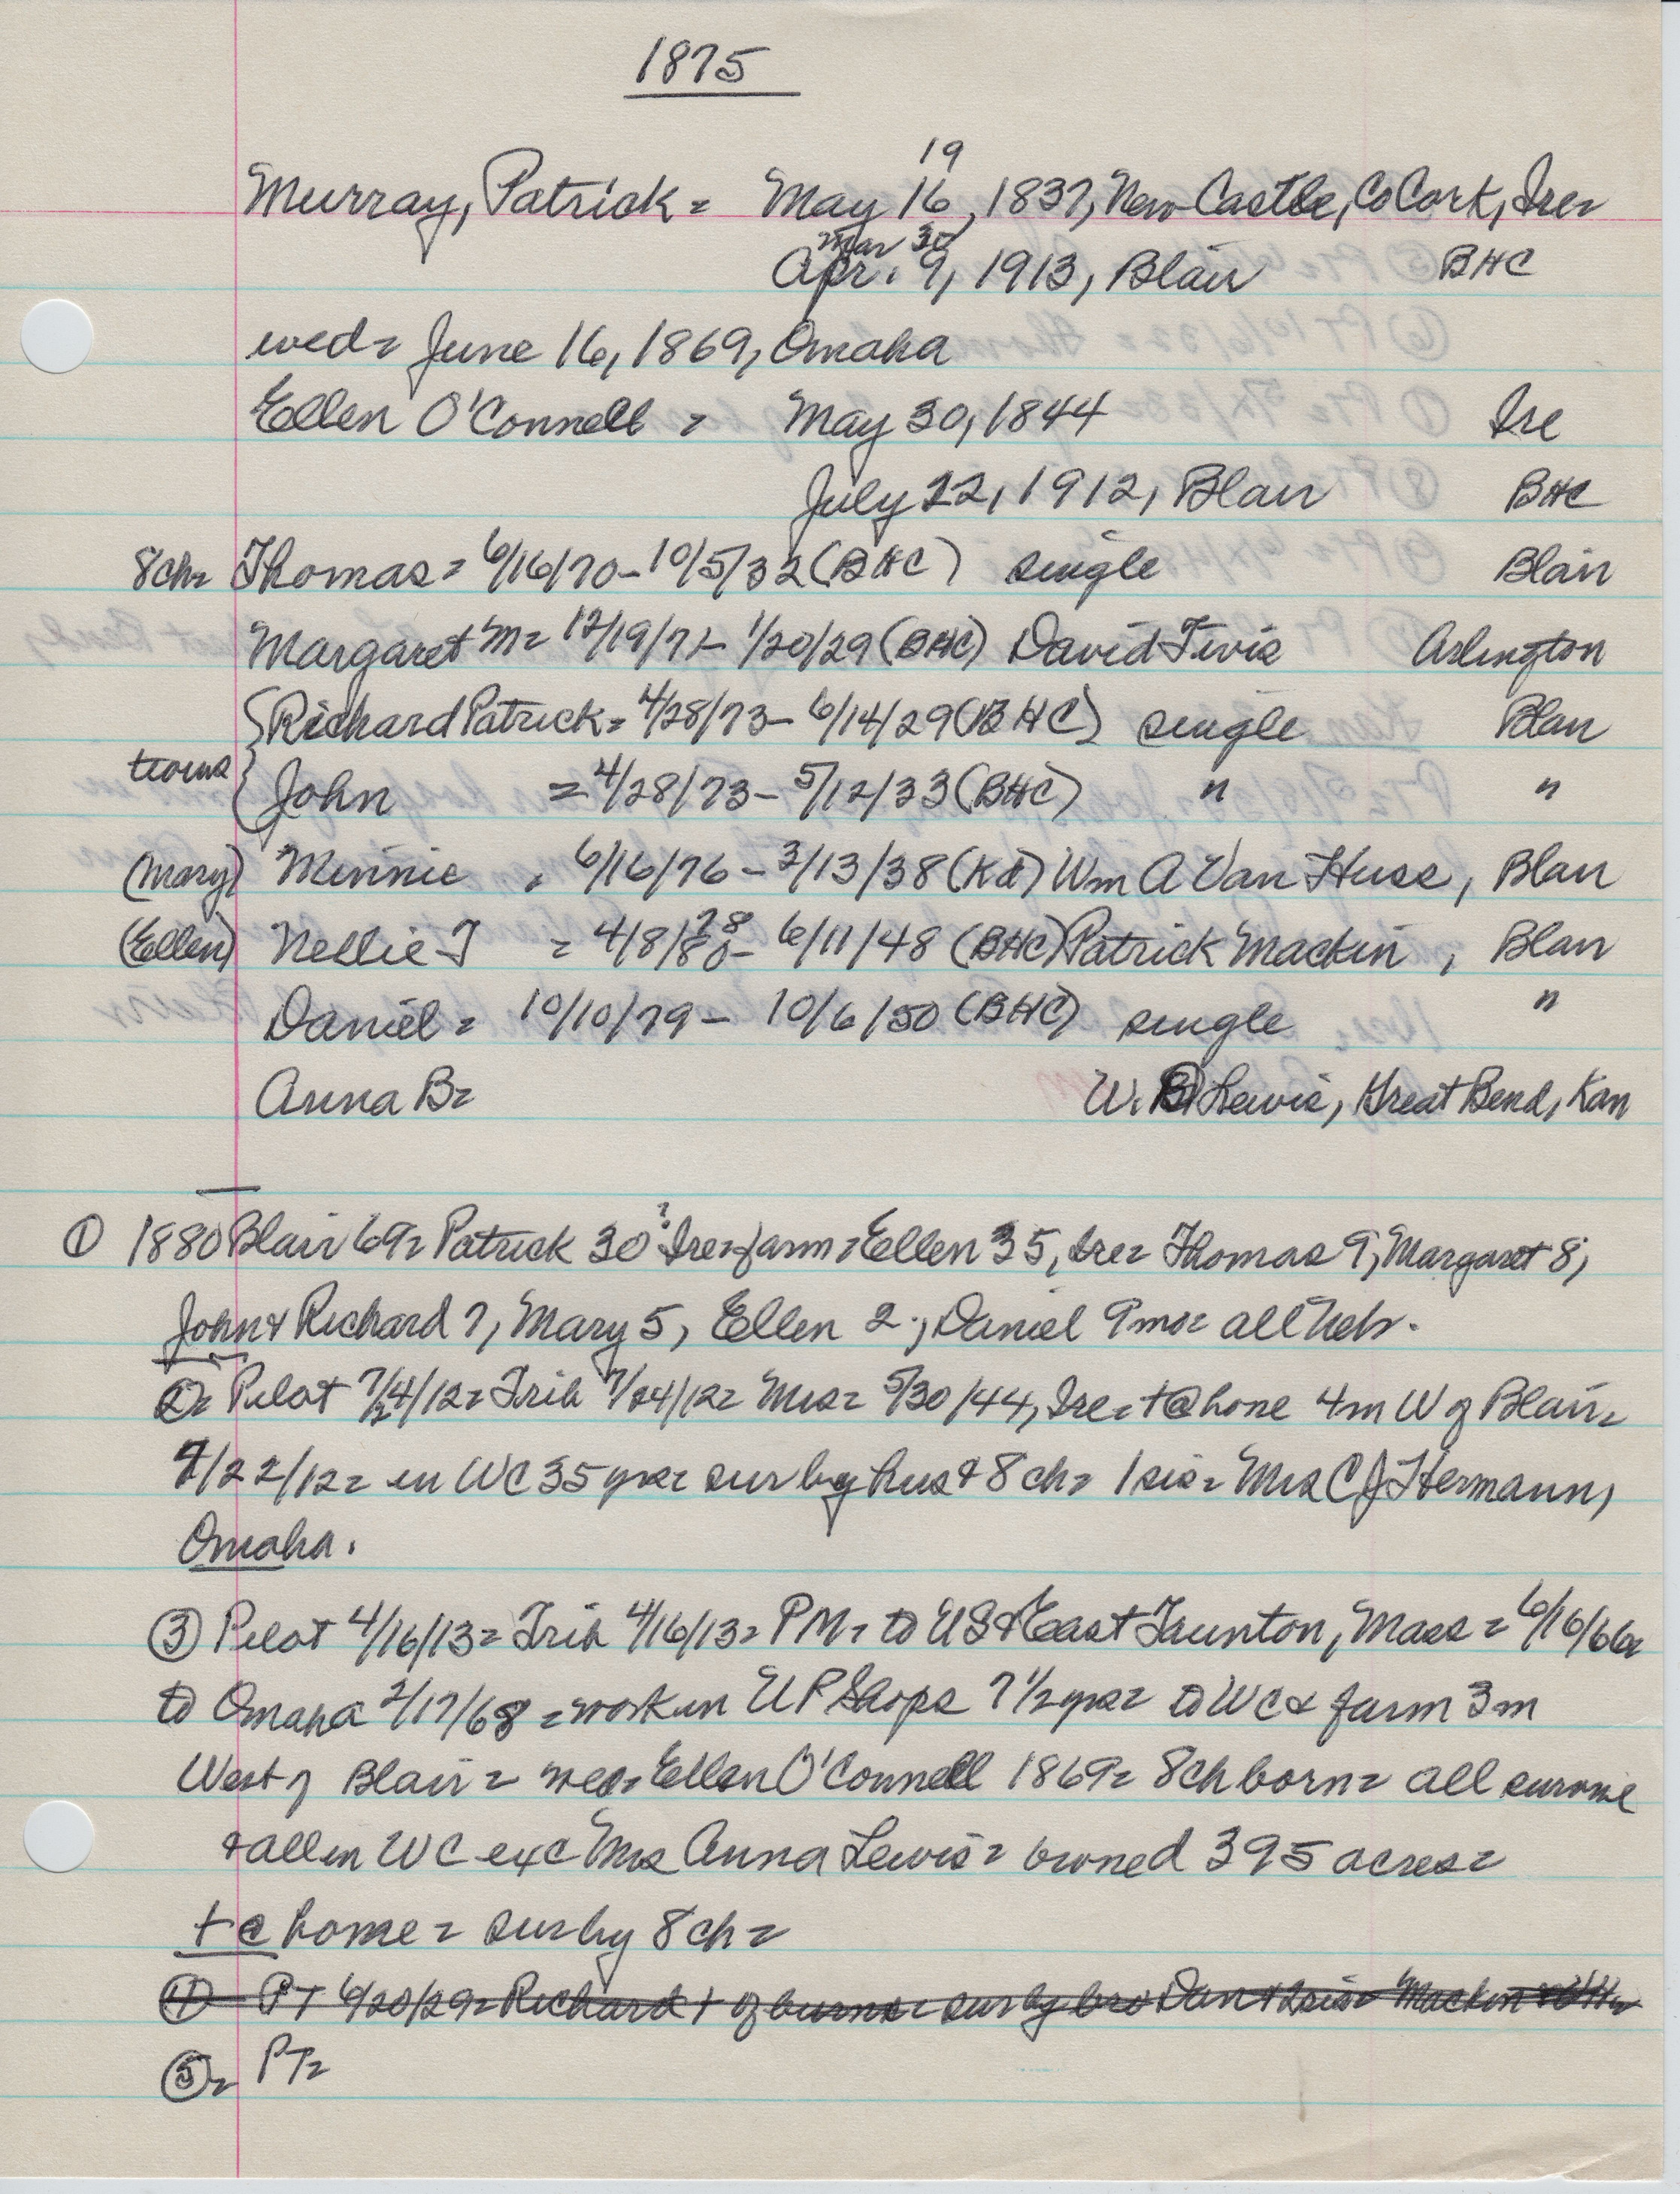 1875
19
Murray, Patrick = May 16, 1837, New Castle, Co Cork, Ire=
Mar 30
Apr. 9, 1913, Blair BHC
wed= June 16, 1869, Omaha
Ellen O'Connell = May 30, 1844 Ire
July 22, 1912, Blair BHC
8ch= Thomas= 6/16/70- 10/5/32 (BHC) single Blair
Margaret M= 12/19/71- 1/20/29 (BHC) David Tivis Arlington
{Richard Patrick= 4/28/73- 6/14/29 (BHC) single Blair
twins {John = 4/28/73- 5/12/33 (BHC) " "
(Mary) Minnie = 6/16/76- 3/13/38 (Kd) Wm A Van Huss, Blair
78
(Ellen) Nellie T = 4/8/80- 6/11/48 (BHC) Patrick Mackin, Blair
Daniel= 10/10/79- 10/6/50 (BHC) single "
Anna B= W. B Lewis, Great Bend, Kan
① 1880 Blair 69= Patrick 30? Ire=farm=Ellen 35, Ire= Thomas 9, Margaret 8,
John & Richard 7, Mary 5, Ellen 2, Daniel 9mo= all Neb.
②= Pilot 7/24/12= Trib 7/24/12= Mrs= 5/30/44, Ire= +@ home 4m W of Blair=
7/22/12= in WC 35 yrs= sur by hus & 8 ch= 1 sis= Mrs C J Hermann,
Omaha.
③ Pilot 4/16/13= Trib 4/16/13= PM= to US & East Taunton, Mass= 6/16/66=
to Omaha 2/17/68= work in UP Shops 7 1/2 yrs= to WC & farm 3m
West of Blair= wed= Ellen O'Connell 1869= 8ch born= all survive
& all in WC exc Mrs Anna Lewis= owned 395 acres=
+@ home= sur by 8 ch=
④ PT 6/20/29= Richard + of burns= sur by bro Dan & 2 sis= Mackin &
⑤= PT=